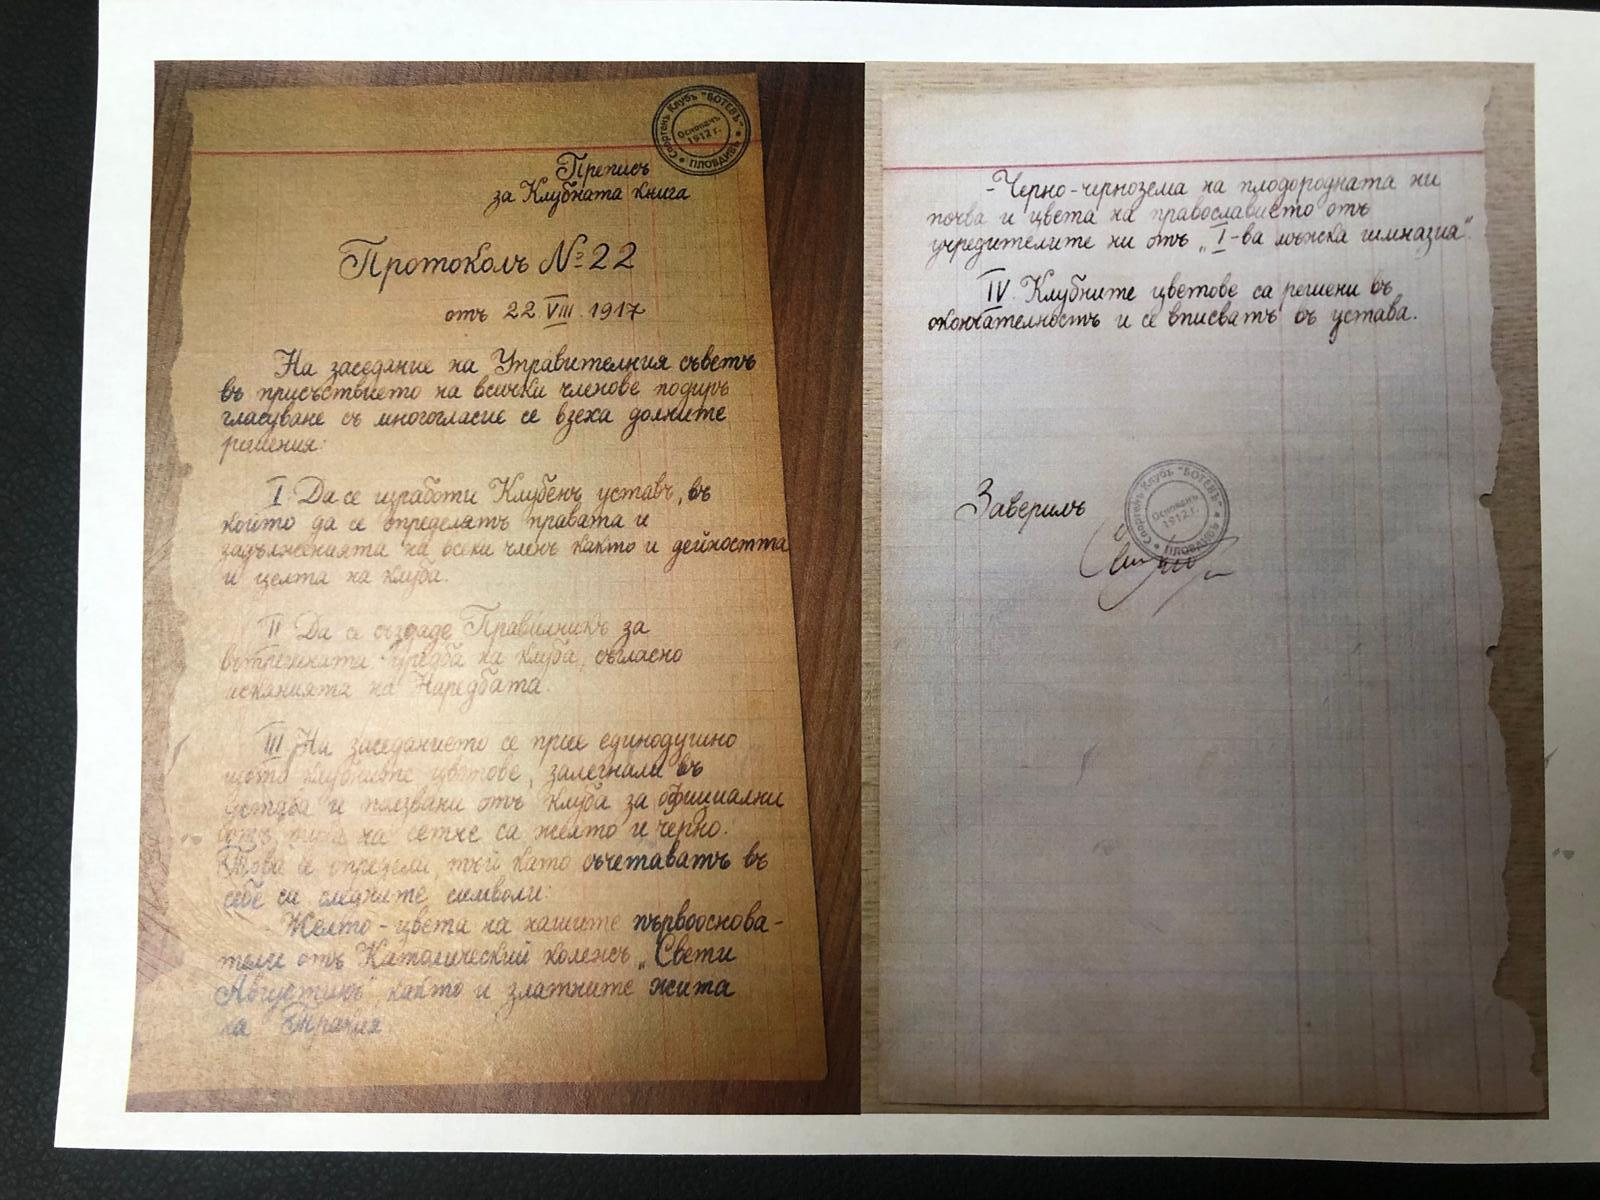 Спортенъ Клубъ "БОТЕВЪ"
Основанъ
1912 г.
ПЛОВДИВЪ
Преписъ
за Клубната книга
Протоколъ № 22
отъ 22 VIII 1917
На заседание на Управителния съветъ
въ присъствието на всички членове подиръ
гласуване съ многогласие се взеха долните
решения:
I Да се изработи Клубенъ уставъ, въ
който да се определятъ правата и
задълженията на всеки членъ както и дейността
и целта на клуба.
II Да се създаде Правилникъ за
вътрешната уредба на клуба, съгласно
исканията на Наредбата.
III На заседанието се прие единодушно
щото клубните цветове, залегнали въ
устава и ползвани отъ клуба за официални
отъ на сетне са желто и черно.
Това се определи, тъй като съчетаватъ въ
себе си следните символи:
- Желто - цвета на нашите първооснова-
тели отъ Католический колежъ „Свети
Августинъ" както и златните жита
на Тракия
- Черно - чернозема на плодородната ни
почва и цвета на православието отъ
учредителите ни отъ „I-ва мъжка гимназия".
IV. Клубните цветове са решени въ
окончателность и се вписватъ въ устава.
Заверилъ
Спортенъ Клубъ "БОТЕВЪ"
Основанъ
1912 г.
ПЛОВДИВЪ